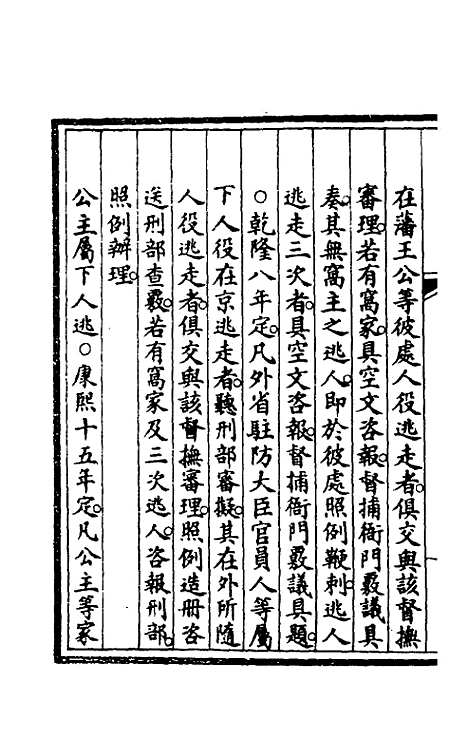 在藩王公等彼處人役逃走者。俱交與該督撫
審理。若有窩家。具空文咨報。督捕衙門覈議具
奏。其無窩主之逃人。即於彼處照例鞭刺。逃人
逃走三次者。具空文咨報。督捕衙門覈議具題。
○乾隆八年定。凡外省駐防大臣官員人等屬
下人役在京逃走者。聽刑部審擬。其在外所隨
人役逃走者。俱交與該督撫審理。照例造冊咨
送刑部查覈。若有窩家及三次逃人。咨報刑部。
照例辦理。
公主屬下人逃○康熙十五年定。凡公主等家